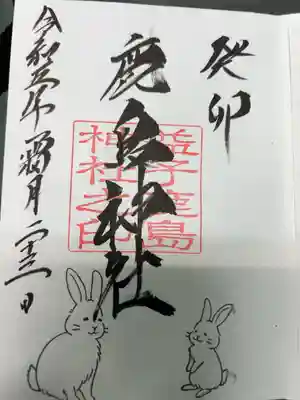 癸卯
鹿島神社
益子鹿島
神社之印
令和五年霜月二十三日